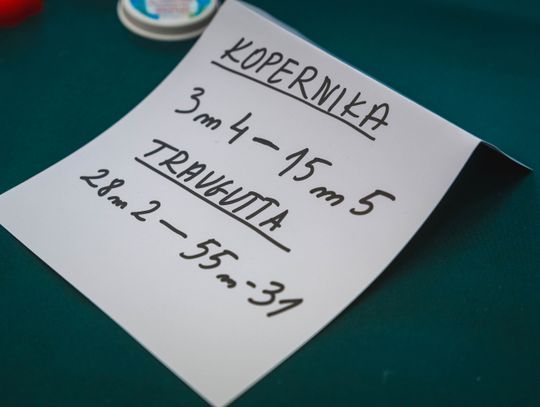 KOPERNIKA
3m4 - 15m5
TRAUGUTTA
28m2 - 55m-31